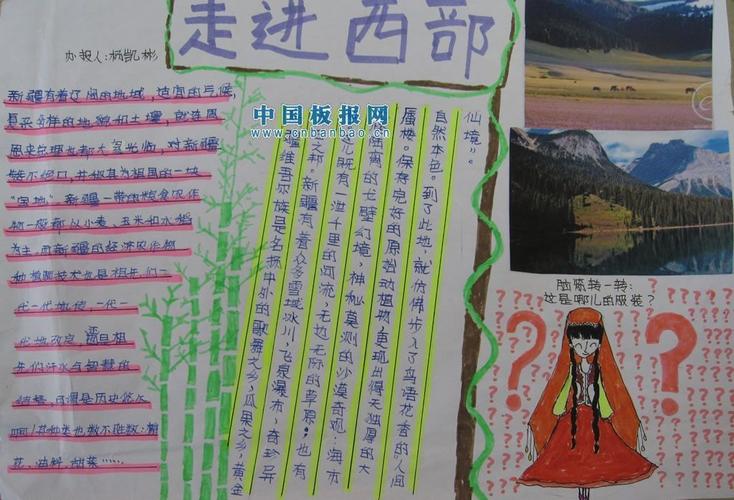 走进西部
办报人:杨凯彬
新疆有着辽阔的地域,适宜的气候,
复杂多样的地貌和土壤,就连周
恩来总理也都大驾光临,对新疆
赞不绝口,并称其为祖国的一块
"宝地"。新疆一带的粮食农作
物一般都以小麦、玉米和水稻
为主,而新疆的经济农作物
种植技术也是祖先们一
代一代地传,一代一
代地改
先们汗水与智慧的
结晶,可谓是历史悠久
啊!其种类也数不胜数:棉
花、油籽、甜菜……
中国板报网
www.cnbanbao.cn
疆维吾尔族是名扬中外的歌舞之乡,瓜果之乡,黄金
之邦。新疆有着众多雪域冰川,飞泉瀑布,奇珍异
既有一泄千里的河流,无边无际的草原;也有
的戈壁幻境,神秘莫测的沙漠奇观:海市
蜃楼。保存完好的原始动植物,更现出得天独厚的大
自然本色。到了此地,就仿佛步入了鸟语花香的"人间
仙境"。
脑筋转一转:
这是哪儿的服装?